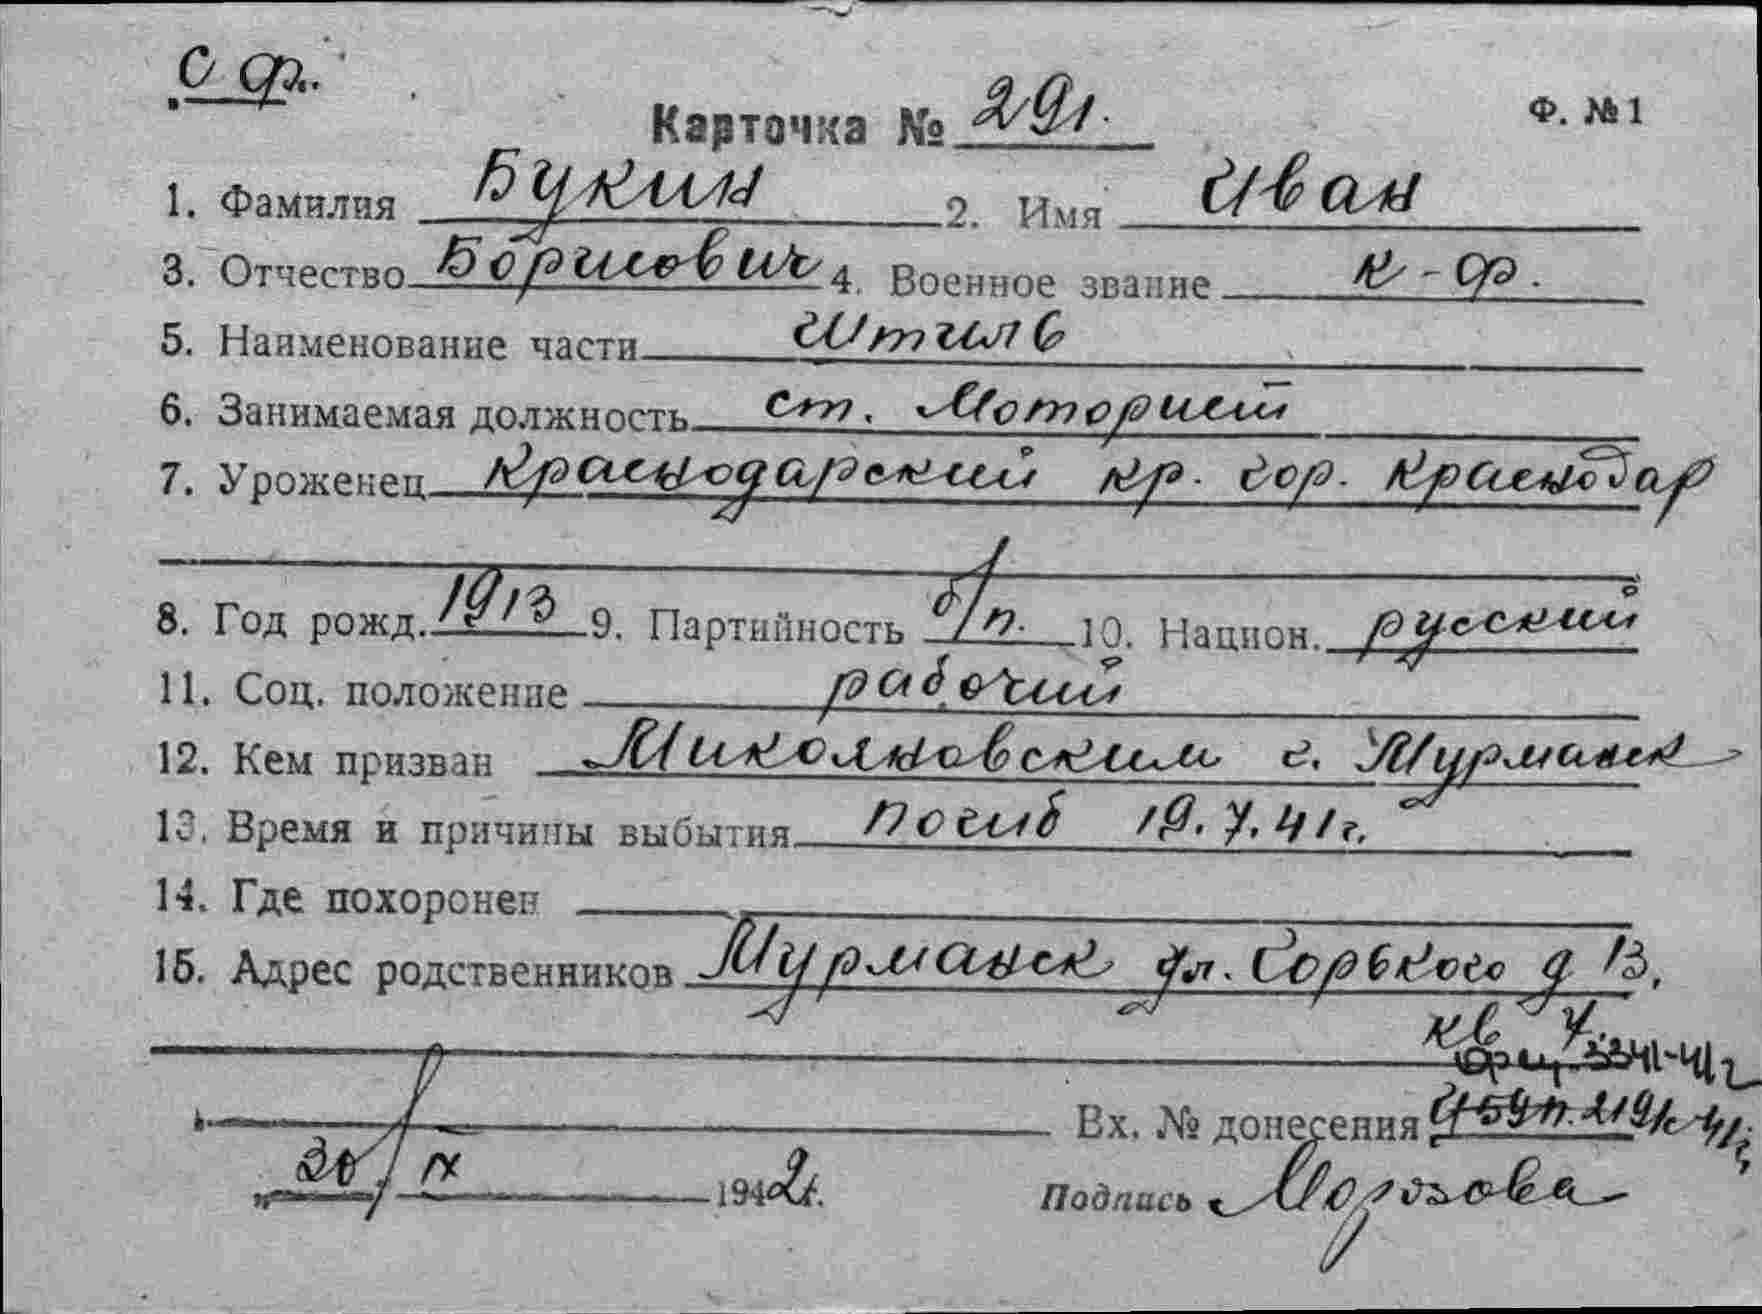 С ф.
Карточка № 291. Ф. № 1
1. Фамилия Букин 2. Имя Иван
3. Отчество Борисович 4. Военное звание к-ф.
5. Наименование части Штиль
6. Занимаемая должность ст. Моторист
7. Уроженец Краснодарский кр. гор. Краснодар
8. Год рожд. 1913 9. Партийность б/п. 10. Национ. русский
11. Соц. положение рабочий
12. Кем призван Микояновским г. Мурманск
13. Время и причины выбытия погиб 19.7.41г.
14. Где похоронен
15. Адрес родственников Мурманск ул. Горького д 13.
кв 7.
3341-41г
Вх. № донесения
30/IX 1942г.
Подпись Морозова